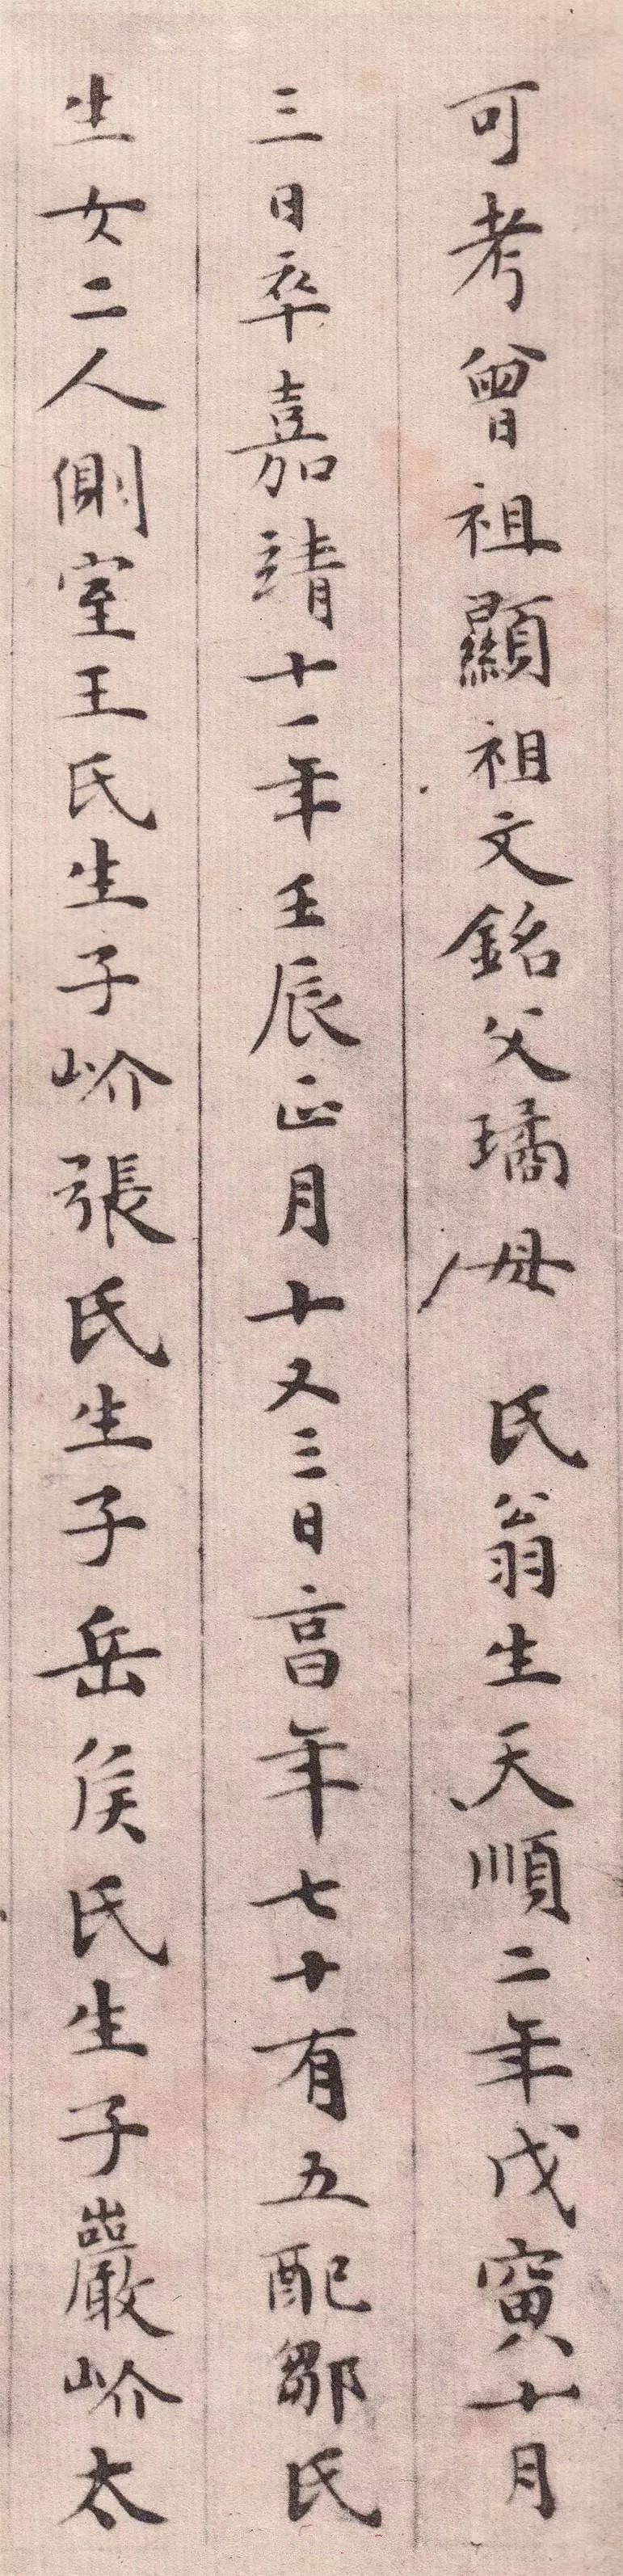 可考曾祖顯祖文銘父璚母 氏翁生天順二年戊寅十月
三日卒嘉靖十一年壬辰正月十又三日亯年七十有五配鄒氏
生女二人側室王氏生子岕張氏生子岳侯氏生子巖岕太